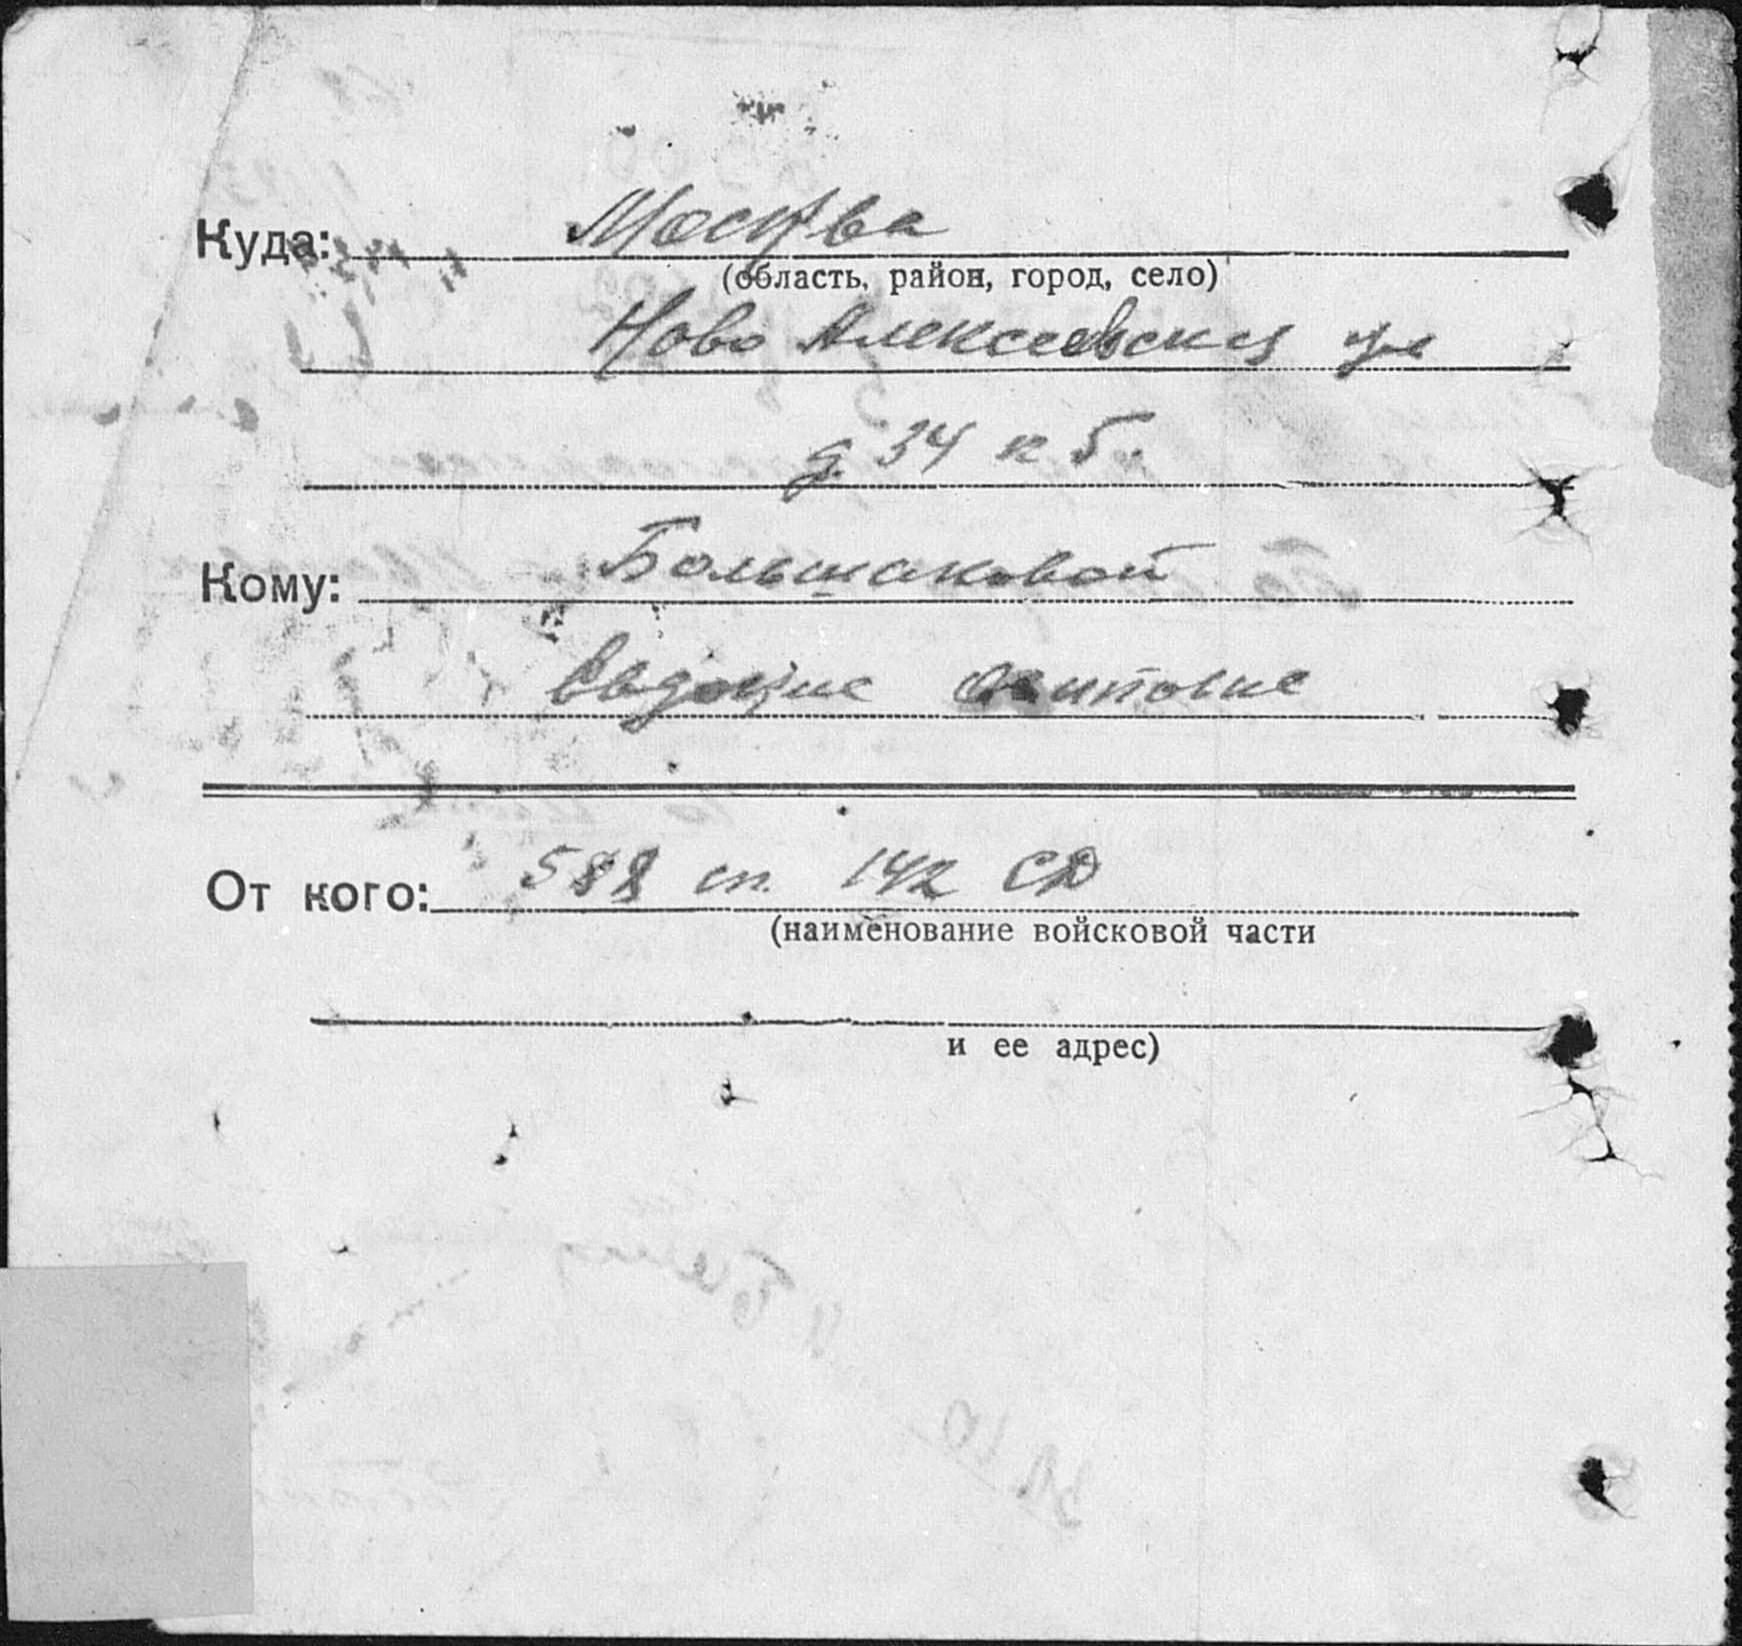 Куда: Москва
(область, район, город, село)
Ново Алексеевская ул
д. 34 к 5.
Кому: Большаковой
Евдокие
От кого: 588 сп. 142 СД
(наименование войсковой части
и ее адрес)